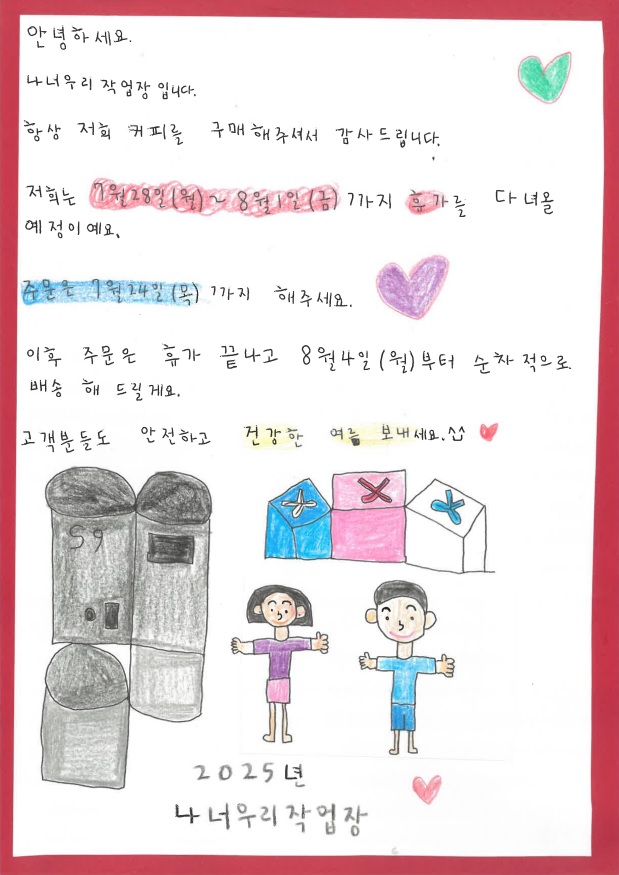 안녕하세요.
나너우리 작업장 입니다.
항상 저희 커피를 구매해주셔서 감사드립니다.
저희는 7월28일(월)~8월1일(금) 까지 휴가를 다녀올
예정이예요.
주문은 7월24일(목) 까지 해주세요.
이후 주문은 휴가 끝나고 8월4일(월)부터 순차적으로
배송 해 드릴게요.
고객분들도 안전하고 건강한 여름 보내세요.^^
S9
2025년
나너우리작업장